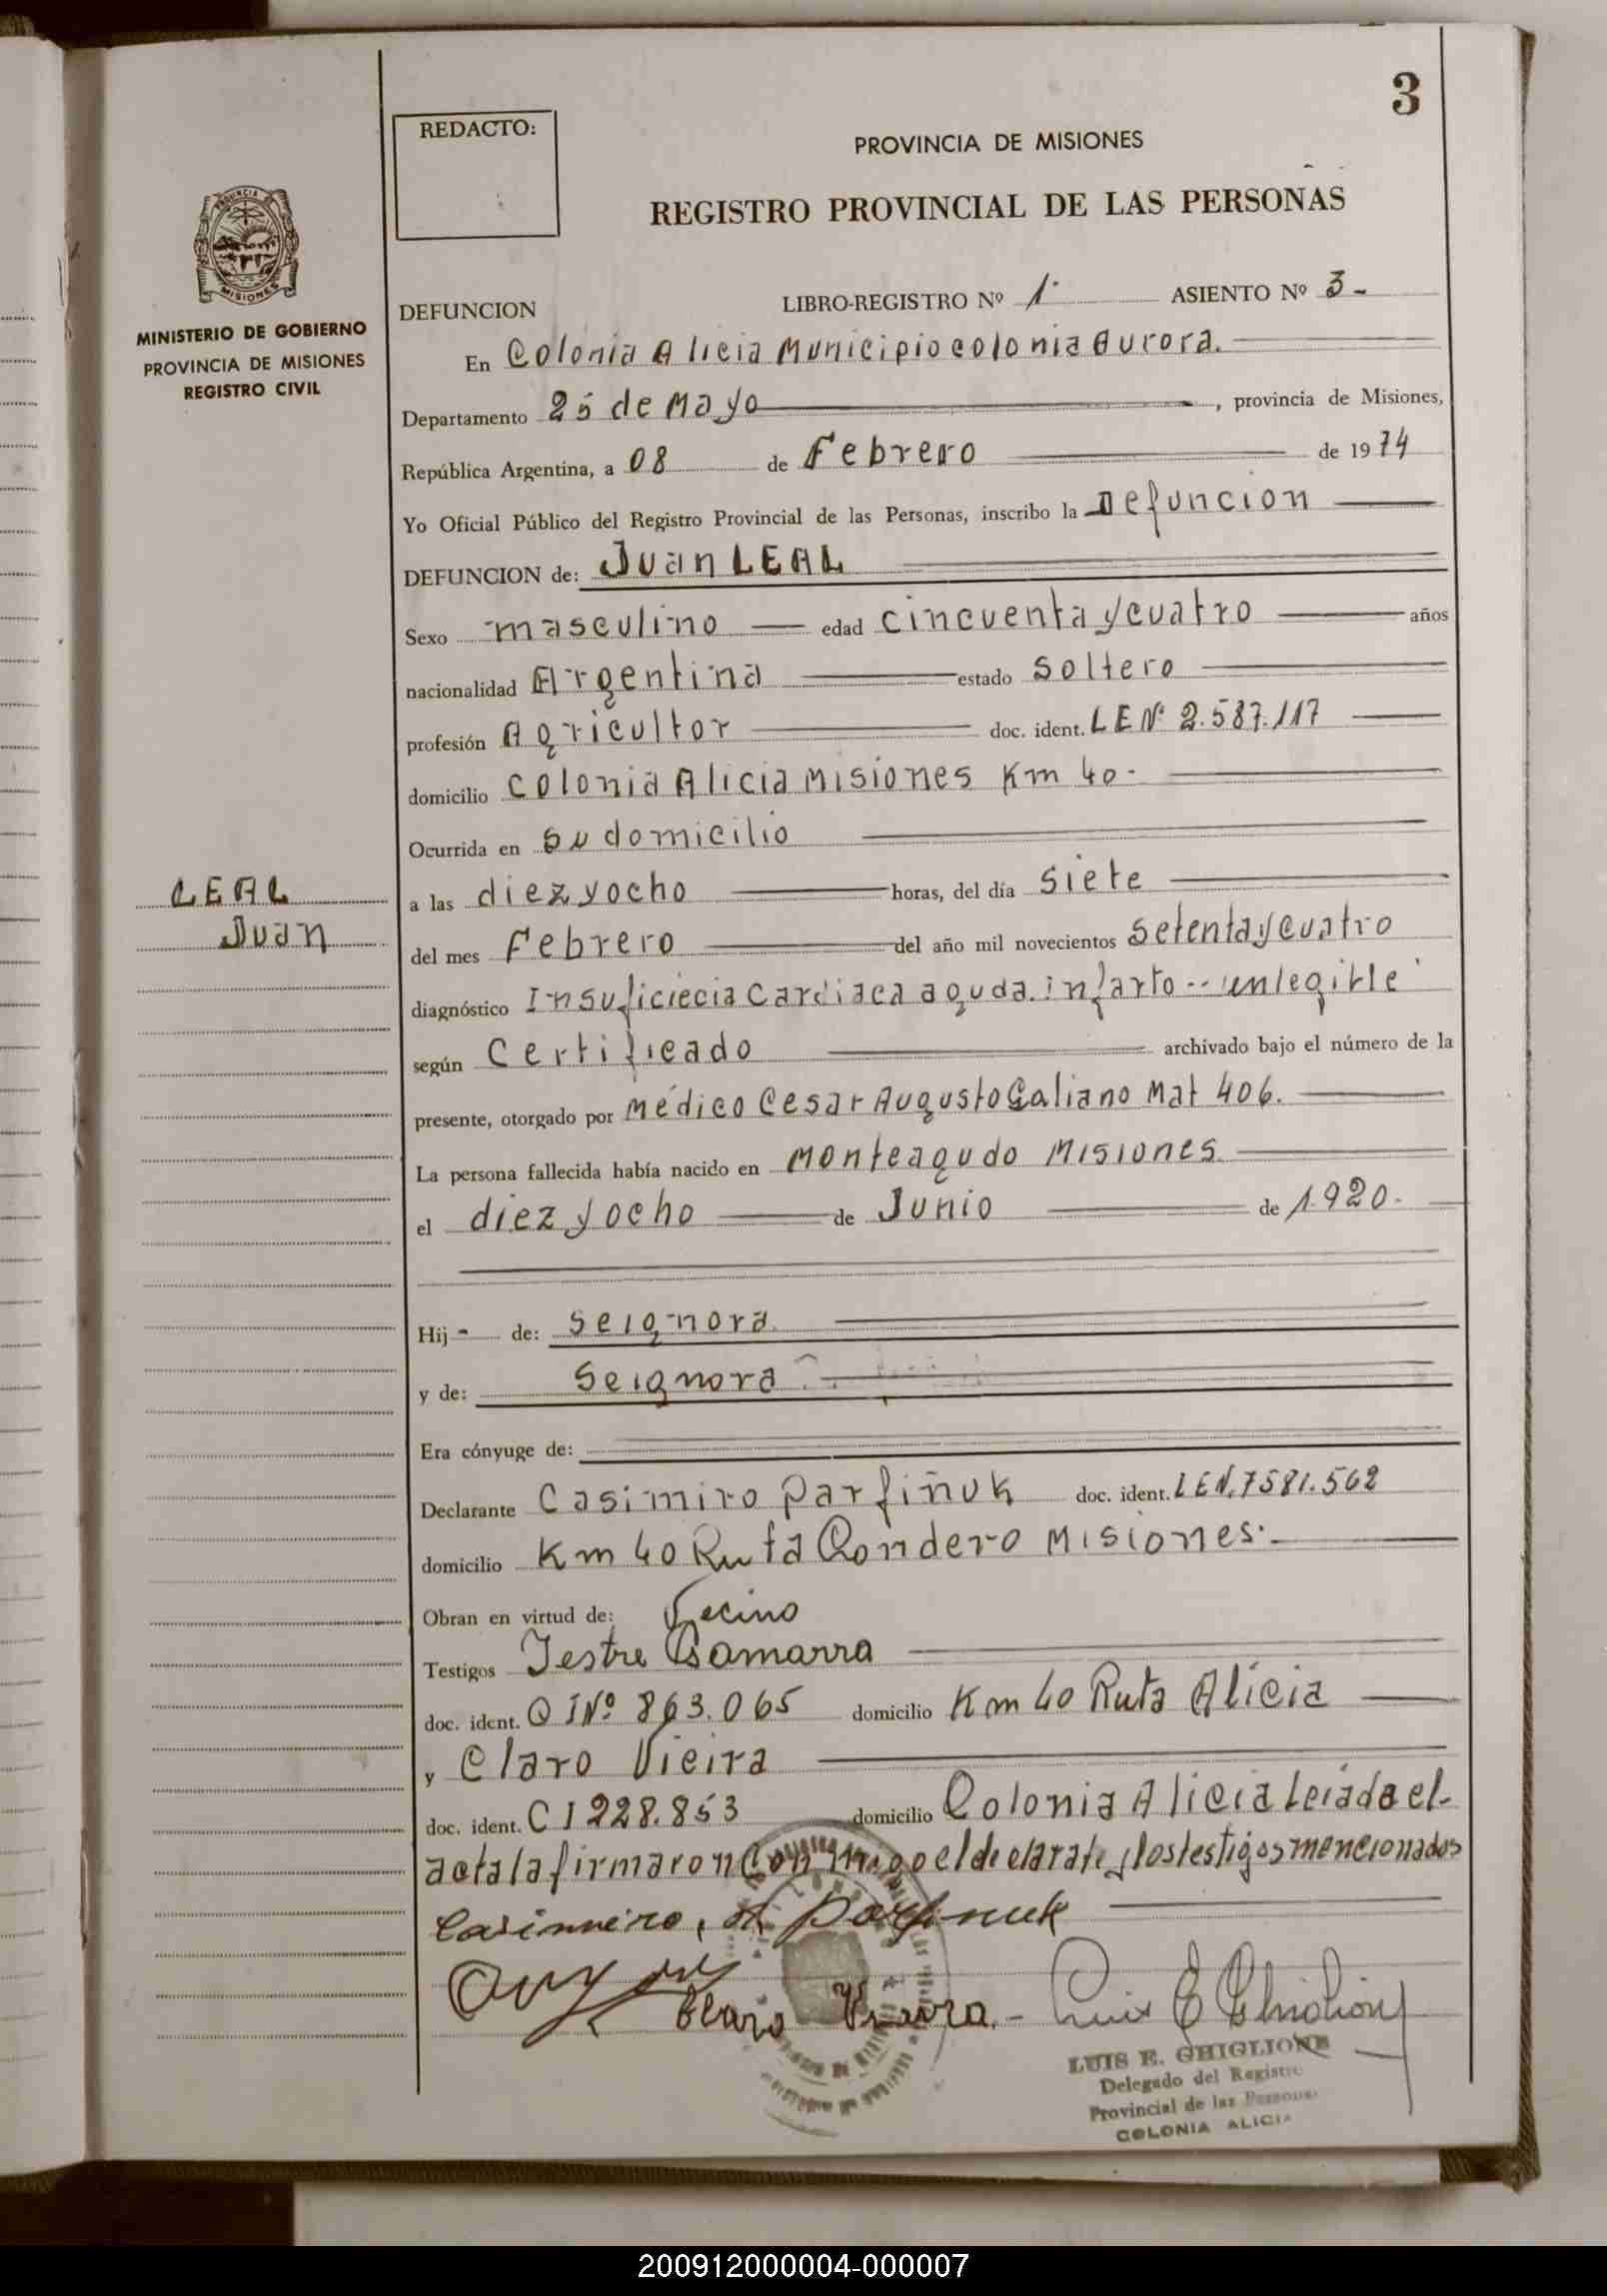 3
REDACTO:
PROVINCIA DE MISIONES
REGISTRO PROVINCIAL DE LAS PERSONAS
PROVINCIA DE
MISIONES
MINISTERIO DE GOBIERNO
PROVINCIA DE MISIONES
REGISTRO CIVIL
DEFUNCION LIBRO-REGISTRO Nº 1· ASIENTO Nº 3-
En Colonia Alicia Municipio colonia Aurora.
Departamento 25 de Mayo, provincia de Misiones,
República Argentina, a 08 de Febrero de 1974
Yo Oficial Público del Registro Provincial de las Personas, inscribo la Defuncion
DEFUNCION de: Juan LEAL
Sexo masculino edad cincuenta y cuatro años
nacionalidad Argentina estado Soltero
profesión Agricultor doc. ident. LE Nº 2.587.117
domicilio Colonia Alicia Misiones Km 40-
Ocurrida en su domicilio
LEAL
Juan
a las diez y ocho horas, del día siete
del mes Febrero del año mil novecientos setenta y cuatro
diagnóstico Insuficiecia Cardiaca aguda. infarto -- inlegible
según Certificado archivado bajo el número de la
presente, otorgado por Médico Cesar Augusto Galiano Mat 406.
La persona fallecida había nacido en Monteagudo Misiones
el diez y ocho de Junio de 1.920.
Hij - de: Seignora
y de: Seignora
Era cónyuge de:
Declarante Casimiro Parfiñuk doc. ident. LEN.7581.562
domicilio Km 40 Ruta Londero Misiones.-
Obran en virtud de: Vecino
Testigos Gamarra
doc. ident. Nº 863.065 domicilio Km 40 Ruta Alicia
y Claro Vieira
doc. ident. CI 228.853 domicilio Colonia Alicia Leiada el-
acta la firmaron Con migo el declarate y los testigos mencionados
Casimiro, Parfinuk
Claro Vieira.-
Luis E Ghiglione
LUIS E. GHIGLIONE
Delegado del Registro
Provincial de las Personas
COLONIA ALICIA
200912000004-000007